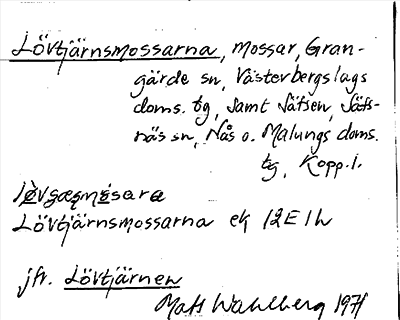 Lövtjärnsmossarna, mossar, Gran-
gärde sn, Västerbergslags
doms. tg, samt Säfsen, Säfs-
näs sn, Nås o. Malungs doms.
tg, Kopp. l.
Lövtjärnsmossarna ek 12E1h
jfr. Lövtjärnen
Mats Wahlberg 1971